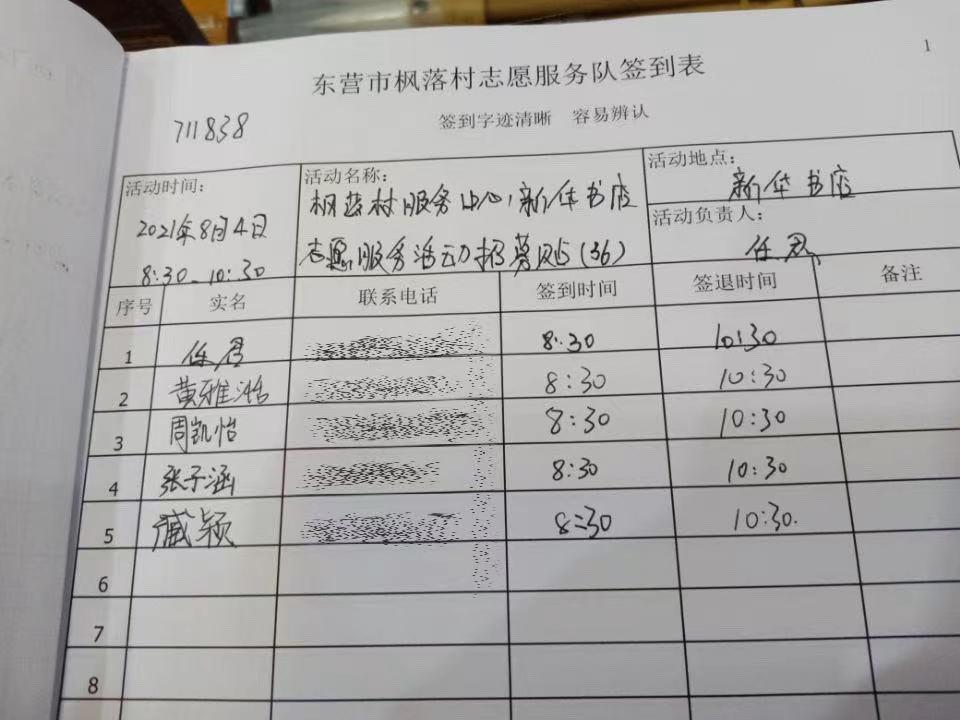 1
东营市枫落村志愿服务队签到表
签到字迹清晰 容易辨认
711838
活动时间:
2021年8月4日
8:30-10:30
活动名称:
枫落村服务中心,新华书店
志愿服务活动招募贴(36)
活动地点:
新华书店
活动负责人:
任君
序号 实名 联系电话 签到时间 签退时间 备注
1 任君 8:30 10:30
2 黄雅浩 8:30 10:30
3 周凯怡 8:30 10:30
4 张子涵 8:30 10:30
5 臧颖 8:30 10:30
6
7
8